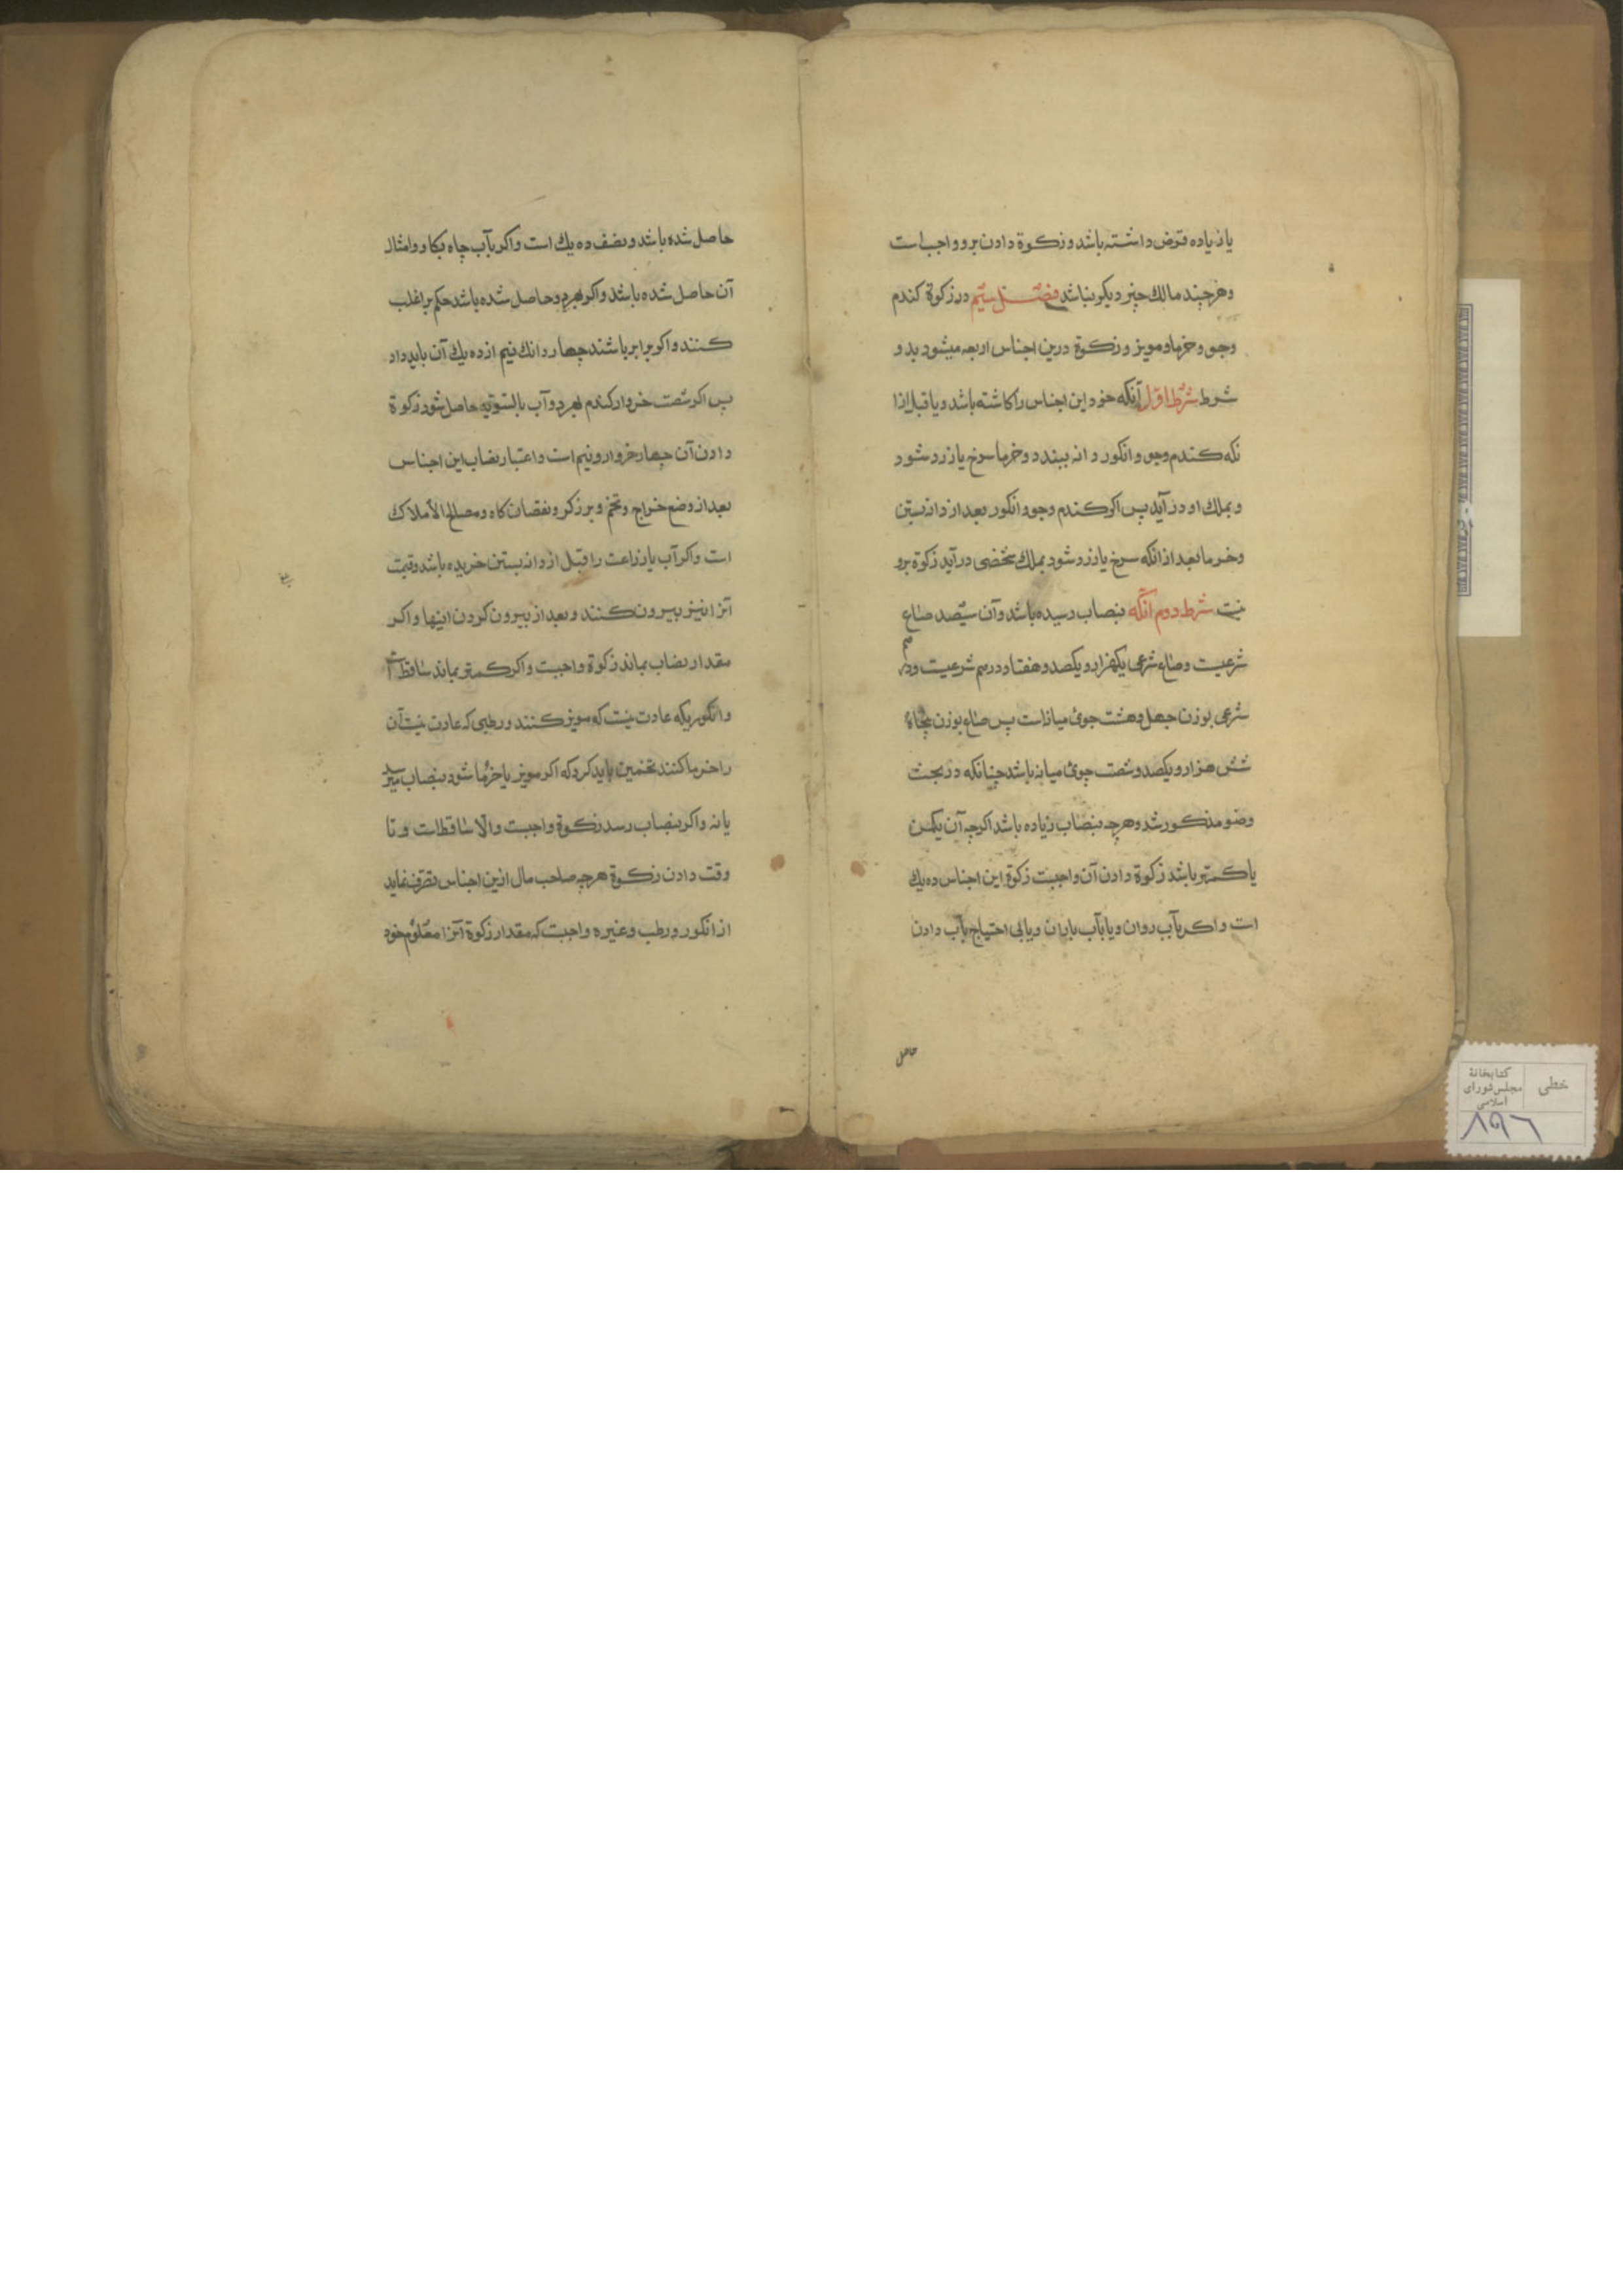 یا زیاده قرض داشته باشد و زکوة دادن برو واجب است
و هرچند مالك چیز دیکر نباشد فصل سیّم در زکوة کندم
و جو و خرما و مویز و زکوة درین اجناس اربعه میشود بدو
شرط شرط اوّل آنکه خود این اجناس را کاشته باشد و یا قبل ازا
نکه کندم و جو و انکور دانه ببندد و خرما سرخ یا زرد شود
و بملك او درآید پس اکر کندم و جو و انکور بعد از دانه بستن
و خرما بعد از انکه سرخ یا زرد شود بملك شخصی درآید زکوة برو
نیست شرط دوم آنکه بنصاب رسیده باشد و آن سیّصد صاع
شرعیست و صاع شرعی یکهزار و یکصد و هفتاد درهم شرعیست و درهم
شرعی بوزن چهل و هشت جوئ میانه است پس صاع بوزن پنجاه
شش هزار و یکصد و شصت جوئ میانه باشد چنانکه در بحث
وضو مذکور شد و هرچه بنصاب زیاده باشد اکرچه آن یکمن
یا کمتر باشد زکوة دادن آن واجبست زکوة این اجناس ده یك
است و اکر بآب روان و یا بآب باران و یا بی احتیاج بآب دادن
حاصل
حاصل شده باشد و نصف ده یك است و اکر بآب چاه بکاو و امثال
آن حاصل شده باشد و اکر بهردو حاصل شده باشد حکم بر اغلب
کنند و اکر برابر باشند چهار دانك نیم از ده یك آن باید داد
پس اکر شصت خروار کندم بهردو آب بالسّویّه حاصل شود زکوة
دادن آن چهار خروار و نیم است و اعتبار نصاب این اجناس
بعد از وضع خراج و تخم و برزکر و نقصان کاه و مصالح الأملاك
است و اکر آب یا زراعت را قبل از دانه بستن خریده باشد و قیمت
آنرا نیز بیرون کنند و بعد از بیرون کردن اینها و اکر
مقدار نصاب بماند زکوة واجبست و اکر کمتر بماند ساقط است
و انکوریکه عادت نیست که مویز کنند و رطبی که عادت نیست آن
را خرما کنند تخمین باید کرد که اکر مویز یا خرما شود بنصاب میرسد
یا نه و اکر بنصاب رسد زکوة واجبست و الّا ساقط است و تا
وقت دادن زکوة هرچه صاحب مال ازین اجناس تصرف نماید
از انکور و رطب و غیره واجبست که مقدار زکوة آنرا معلوم خود
خطی
کتابخانهٔ
مجلس شورای
اسلامی
۸۹۶